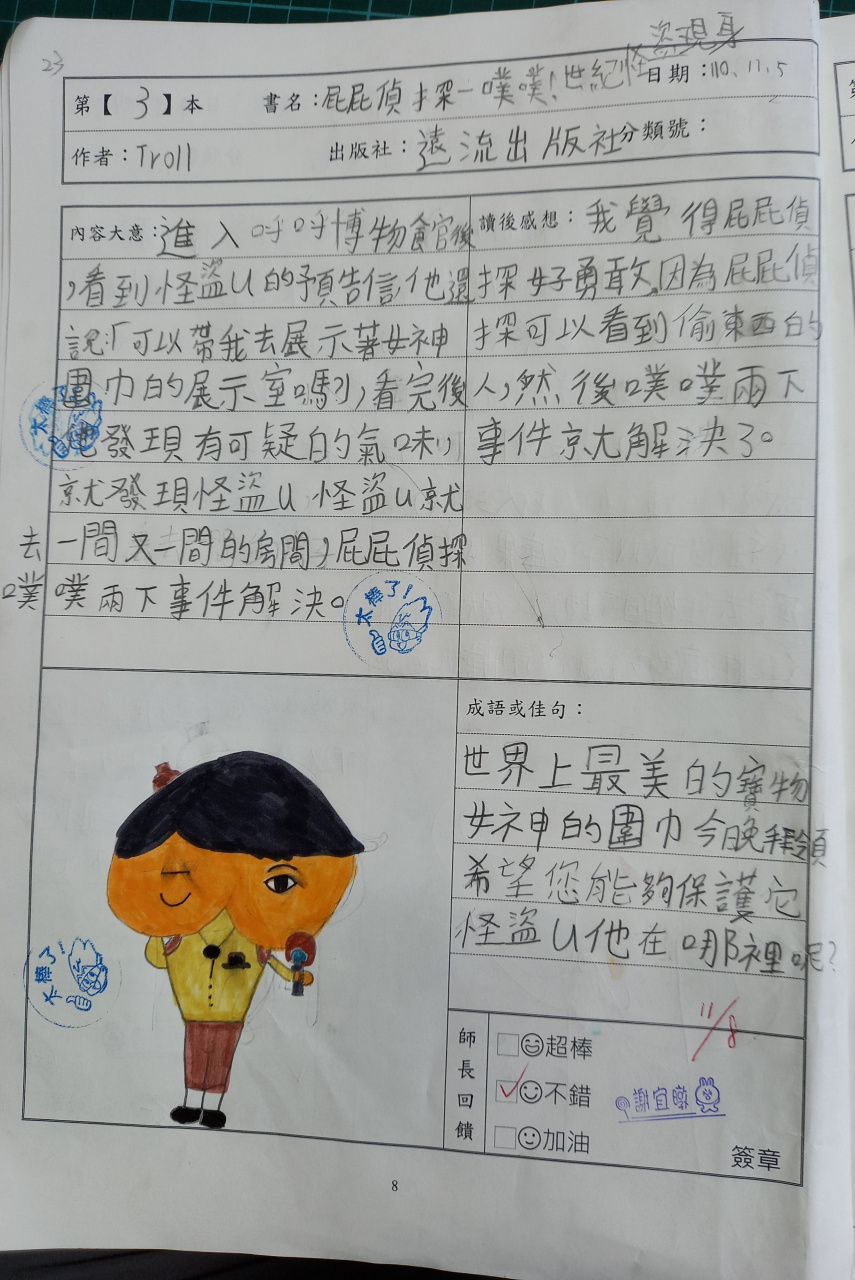 23
第【3】本 書名：屁屁偵探-噗噗！世紀怪盜現身 日期：110.11.5
作者：Troll 出版社：遠流出版社 分類號：
內容大意：進入呼呼博物館後
，看到怪盜U的預告信，他還
說：「可以帶我去展示著女神
圍巾的展示室嗎?」，看完後
他發現有可疑的氣味，
就發現怪盜U 怪盜U就
去一間又一間的房間，屁屁偵探
噗噗兩下事件解決。
讀後感想：我覺得屁屁偵
探好勇敢，因為屁屁偵
探可以看到偷東西的
人，然後噗噗兩下
事件就解決了。
太棒了！
太棒了！
太棒了！
成語或佳句：
世界上最美的寶物
女神的圍巾今晚
希望您能夠保護它
怪盜U他在哪裡呢？
師長回饋
超棒
不錯
加油
11/8
簽章
8